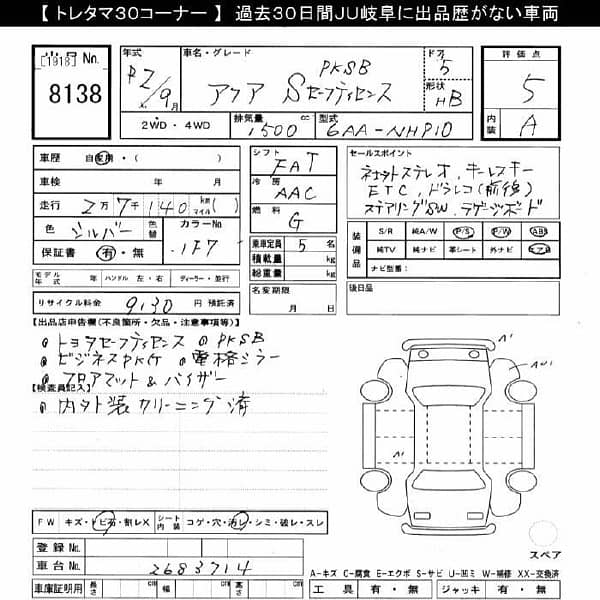 【トレタマ30コーナー】 過去30日間JU岐阜に出品歴がない車両
[1918] No.
8138
年式
R2/9月
車名・グレード
PKSB
アクア Sセーフティセンス
ドア
5
形状
HB
2WD・4WD
排気量
1500 cc
型式
6AA-NHP10
評価点
5
内装
A
車歴 自家用・( )
車検 年 月
走行 2万7千140 km マイル ( )
色 シルバー 色替
カラーNo 1F7
保証書 有・無
シフト FAT
冷房 AAC
燃料 G
乗車定員 5 名
積載量 kg
総重量 kg
セールスポイント
ネオナットステレオ、キーレスキー
ETC、ドラレコ(前後)
ステアリングSW、ラゲージボード
装備品
S/R 純A/W P/S P/W ABS
純TV 純ナビ 革シート 外ナビ エアB
ナビ型番:
モデル年式 年 ハンドル 左・右 ディーラー・並行
リサイクル料金 9130 円 預託済
名変期限 月 日
後日品
【出品店申告欄(不良箇所・欠品・注意事項等)】
●トヨタセーフティセンス ●PKSB
●ビジネスPKG ●電格ミラー
●フロアマット&バイザー
【検査員記入】
●内外装クリーニング済
A1
A1
FW キズ・トビ石・割レX シート内装 コゲ・穴・汚レ・シミ・破レ・スレ
スペア
登録No.
車台No. 2683714
A-キズ C-腐食 E-エクボ S-サビ U-凹ミ W-補修 XX-交換済
車庫証明用 長さ cm 幅 cm 高さ cm
工具 有・無 ジャッキ 有・無